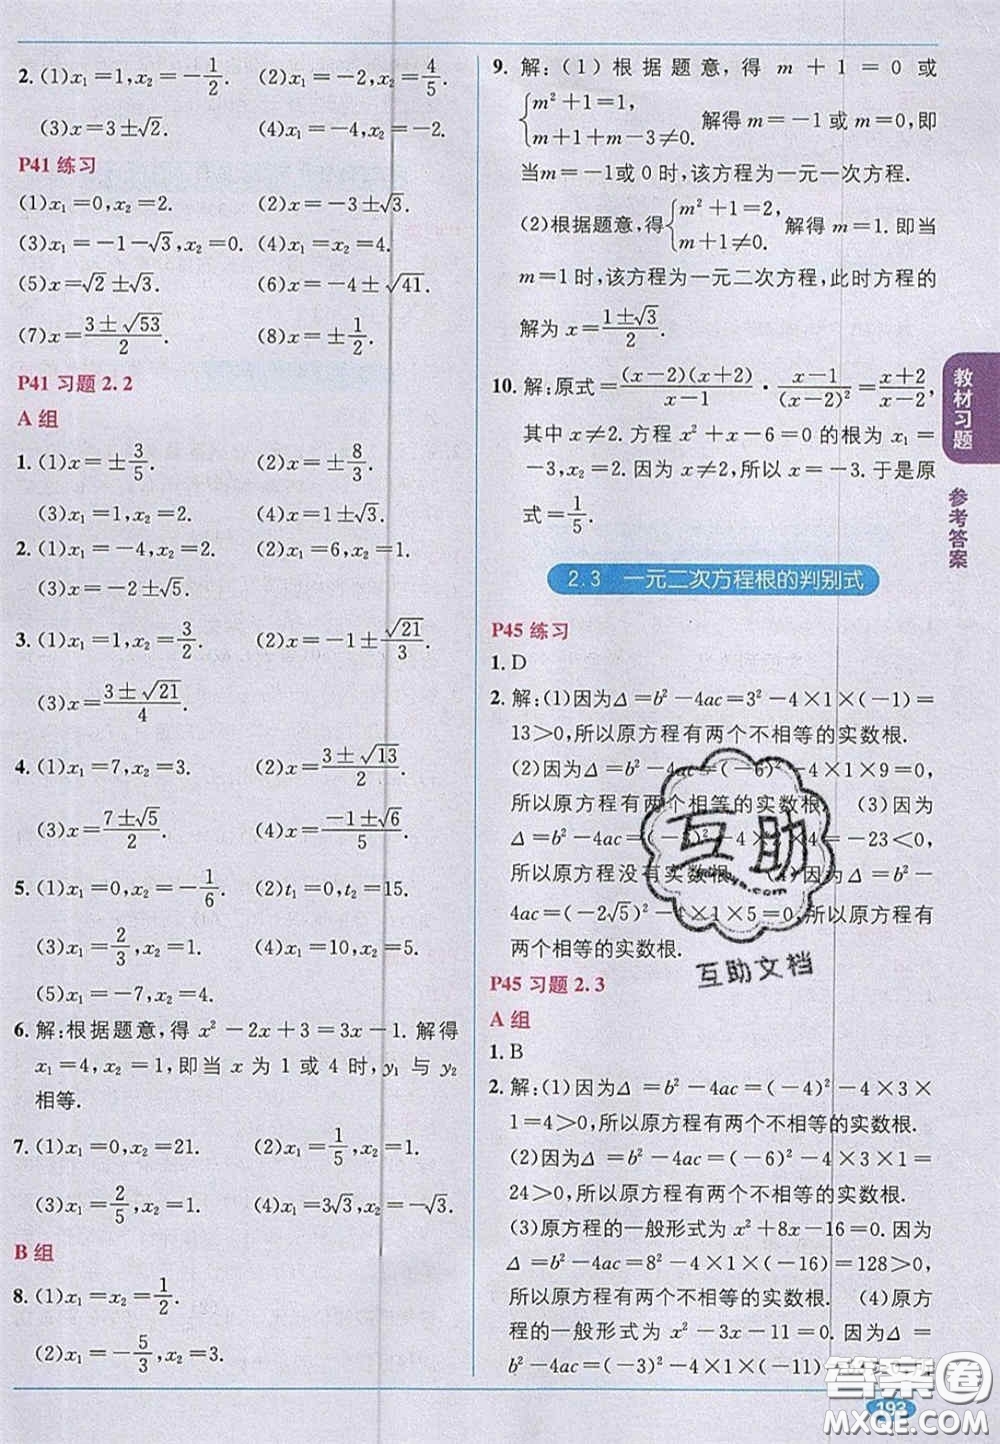 2. (1)x₁=1,x₂=-1/2. (2)x₁=-2,x₂=4/5.
(3)x=3±√2. (4)x₁=-4,x₂=-2.
P41 练习
(1)x₁=0,x₂=2. (2)x=-3±√3.
(3)x₁=-1-√3,x₂=0. (4)x₁=x₂=4.
(5)x=√2±√3. (6)x=-4±√41.
(7)x=(3±√53)/2. (8)x=±1/2.
P41 习题 2.2
A 组
1. (1)x=±3/5. (2)x=±8/3.
(3)x₁=1,x₂=2. (4)x=1±√3.
2. (1)x₁=-4,x₂=2. (2)x₁=6,x₂=1.
(3)x=-2±√3.
3. (1)x₁=1,x₂=3/2. (2)x=-1±√21/3.
(3)x=(3±√21)/4.
4. (1)x₁=7,x₂=3. (2)x=(3±√13)/2.
(3)x=(7±√5)/2. (4)x=(-1±√6)/5.
5. (1)x₁=0,x₂=-1/6. (2)t₁=0,t₂=15.
(3)x₁=2/3,x₂=1. (4)x₁=10,x₂=5.
(5)x₁=-7,x₂=4.
6. 解:根据题意,得 x²-2x+3=3x-1. 解得
x₁=4,x₂=1,即当 x 为 1 或 4 时,y₁ 与 y₂
相等.
7. (1)x₁=0,x₂=21. (2)x₁=1/5,x₂=1.
(3)x₁=2/5,x₂=1. (4)x₁=3√3,x₂=-√3.
B 组
8. (1)x₁=x₂=1/2.
(2)x₁=-5/3,x₂=3.
9. 解:(1)根据题意,得 m+1=0 或
{m²+1=1, m+1+m-3≠0. 解得 m=-1 或 m=0,即
当 m=-1或 0 时,该方程为一元一次方程.
(2)根据题意,得{m²+1=2, m+1≠0. 解得 m=1. 当
m=1 时,该方程为一元二次方程,此时方程的
解为 x=(1±√3)/2.
10. 解:原式=(x-2)(x+2)/(x-1)·(x-1)/(x-2)²=(x+2)/(x-2),
其中 x≠2. 方程 x²+x-6=0 的根为 x₁=
-3,x₂=2. 因为 x≠2,所以 x=-3. 于是原
式=1/5.
2.3 一元二次方程根的判别式
P45 练习
1. D
2. 解:(1)因为Δ=b²-4ac=3²-4×1×(-1)=
13>0,所以原方程有两个不相等的实数根.
(2)因为Δ=b²-4ac=(-6)²-4×1×9=0,
所以原方程有两个相等的实数根. (3)因为
Δ=b²-4ac=(-3)²-4×4×=-23<0,
所以原方程没有实数根. (4)因为Δ=b²-
4ac=(-2√5)²-4×1×5=0,所以原方程有
两个相等的实数根.
P45 习题 2.3
A 组
1. B
2. 解:(1)因为Δ=b²-4ac=(-4)²-4×3×
1=4>0,所以原方程有两个不相等的实数根.
(2)因为Δ=b²-4ac=(-6)²-4×1×3=
24>0,所以原方程有两个不相等的实数根.
(3)原方程的一般形式为 x²+8x-16=0. 因为
Δ=b²-4ac=8²-4×1×(-16)=128>0,
所以原方程有两个不相等的实数根. (4)原方
程的一般形式为 x²-3x-11=0. 因为Δ=
b²-4ac=(-3)²-4×1×(-11)=
教材习题
参考答案
192
互助
互助文档
答案圈
MXQE.COM